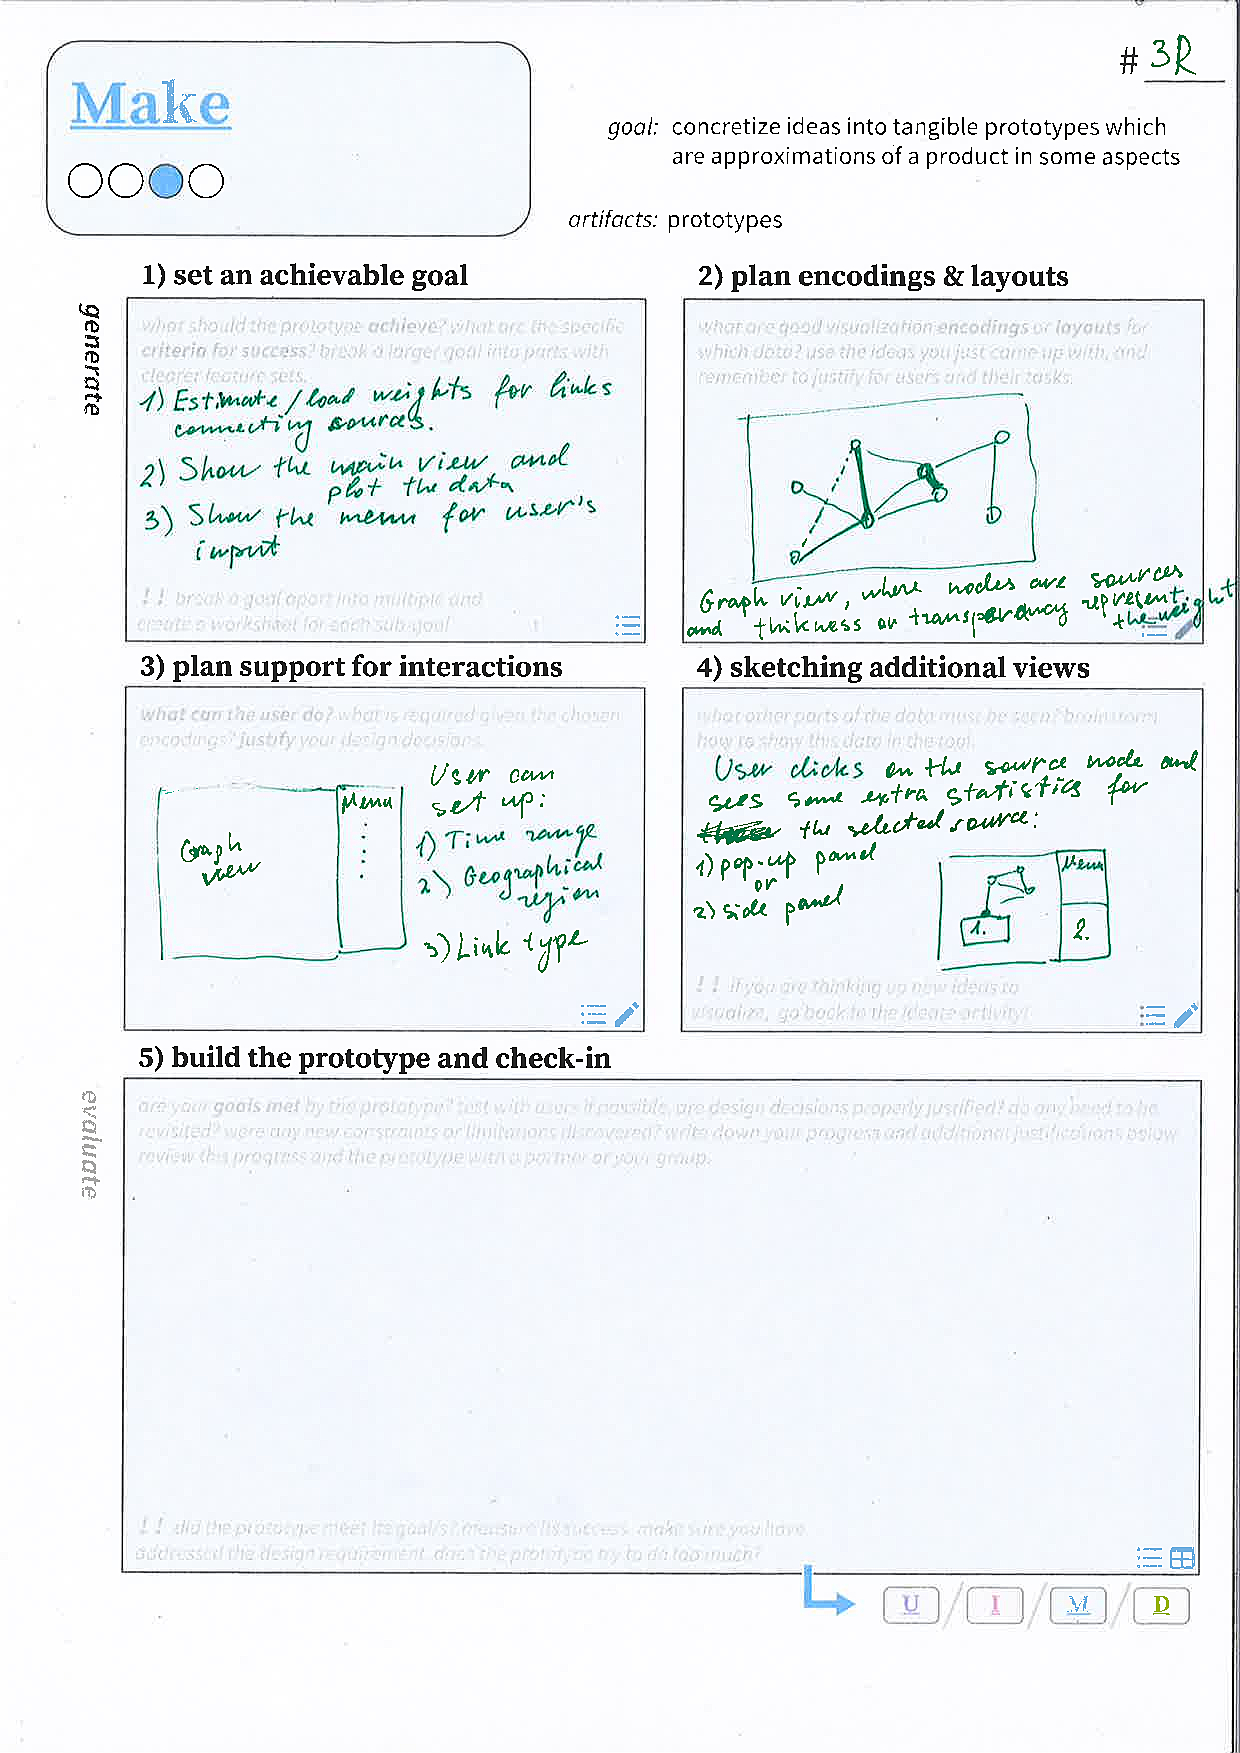 # 3R
Make
goal: concretize ideas into tangible prototypes which
are approximations of a product in some aspects
artifacts: prototypes
generate
1) set an achievable goal
what should the prototype achieve? what are the specific
criteria for success? break a larger goal into parts with
clearer feature sets.
1) Estimate/load weights for links
connecting sources.
2) Show the main view and
plot the data
3) Show the menu for user's
input
!! break a goal apart into multiple and
create a worksheet for each sub-goal
2) plan encodings & layouts
what are good visualization encodings or layouts for
which data? use the ideas you just came up with, and
remember to justify for users and their tasks.
Graph view, where nodes are sources
and thikness or transparency represent
the weight
3) plan support for interactions
what can the user do? what is required given the chosen
encodings? justify your design decisions.
Graph
view
Menu
User can
set up:
1) Time range
2) Geographical
region
3) Link type
4) sketching additional views
what other parts of the data must be seen? brainstorm
how to show this data in the tool.
User clicks on the source node and
sees some extra statistics for
the selected source:
1) pop-up panel
or
2) side panel
Menu
1.
2.
!! if you are thinking up new ideas to
visualize, go back to the ideate activity!
evaluate
5) build the prototype and check-in
are your goals met by the prototype? test with users if possible. are design decisions properly justified? do any need to be
revisited? were any new constraints or limitations discovered? write down your progress and additional justifications below
review this progress and the prototype with a partner or your group.
!! did the prototype meet its goal/s? measure its success. make sure you have
addressed the design requirement. does the prototype try to do too much?
U / I / M / D